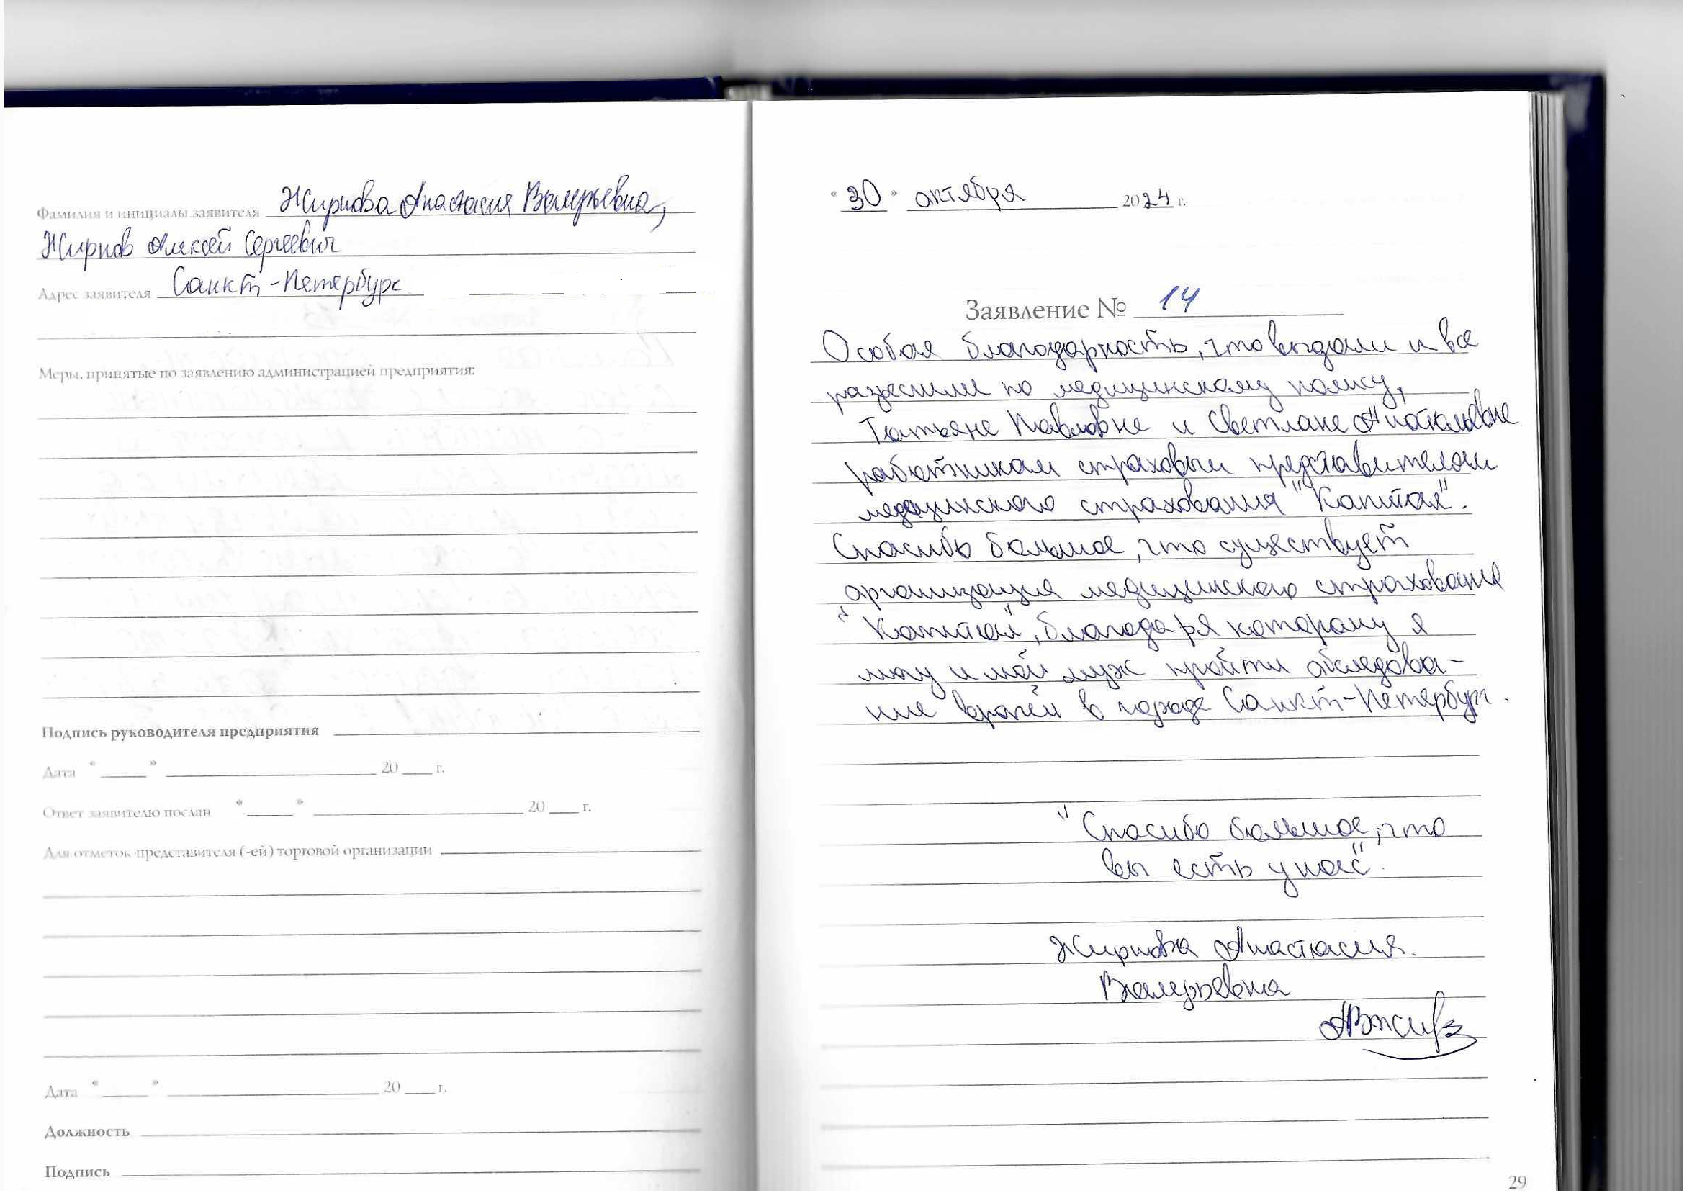 Фамилия и инициалы заявителя Жирнова Анастасия Валерьевна,
Жирнов Алексей Сергеевич
Адрес заявителя Санкт-Петербург
Меры, принятые по заявлению администрацией предприятия:
Подпись руководителя предприятия
Дата " " 20 г.
Ответ заявителю послан " " 20 г.
Для отметок представителя (-ей) торговой организации
Дата " " 20 г.
Должность
Подпись
"30" октября 2024 г.
Заявление № 14
Особая благодарность, что выдали и все
разрешили по медицинскому полису,
Татьяне Павловне и Светлане Анатольевне
работникам страховым представителям
медицинского страхования "Капитал".
Спасибо большое, что существует
организация медицинского страхование
"Капитал", благодаря которому я
могу и мой муж пройти обследова-
ние врачей в городе Санкт-Петербург.
"Спасибо большое, что
вы есть у нас".
Жирнова Анастасия.
Валерьевна
29